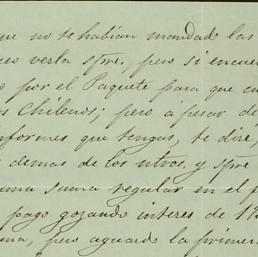 que no se habian mandado las
eo verla spre, pero si encue
o por el Paquete para que cu
s Chilenos; pero á pesar de
nformes que tengas, te dire,
demas de los ntros. y spre
una suma regular en el p
pago gozando interes de 1
ma, pero aguardo la primer